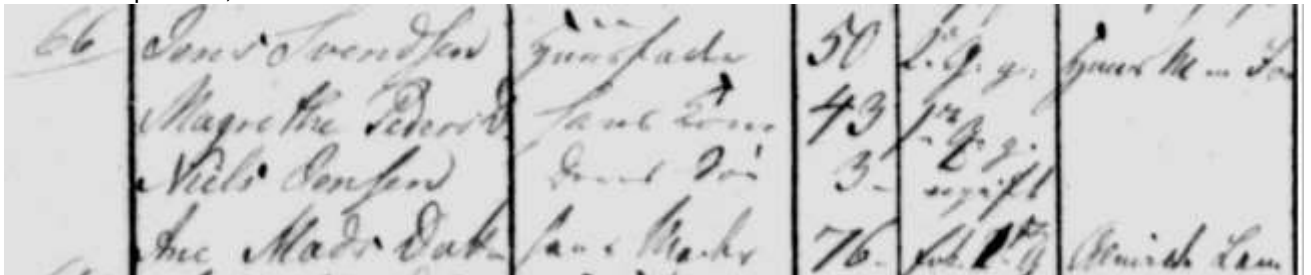 66 Jens Svendsen Huusfader 50 2. G. g. Huus M. Jo
Magrethe Peders D. hans Kone 43 1. G. g.
Niels Jensen Deres Søn 3 - ugift
Ane Mads Dat. hans Moder 76 - 1. G Almisse Lem